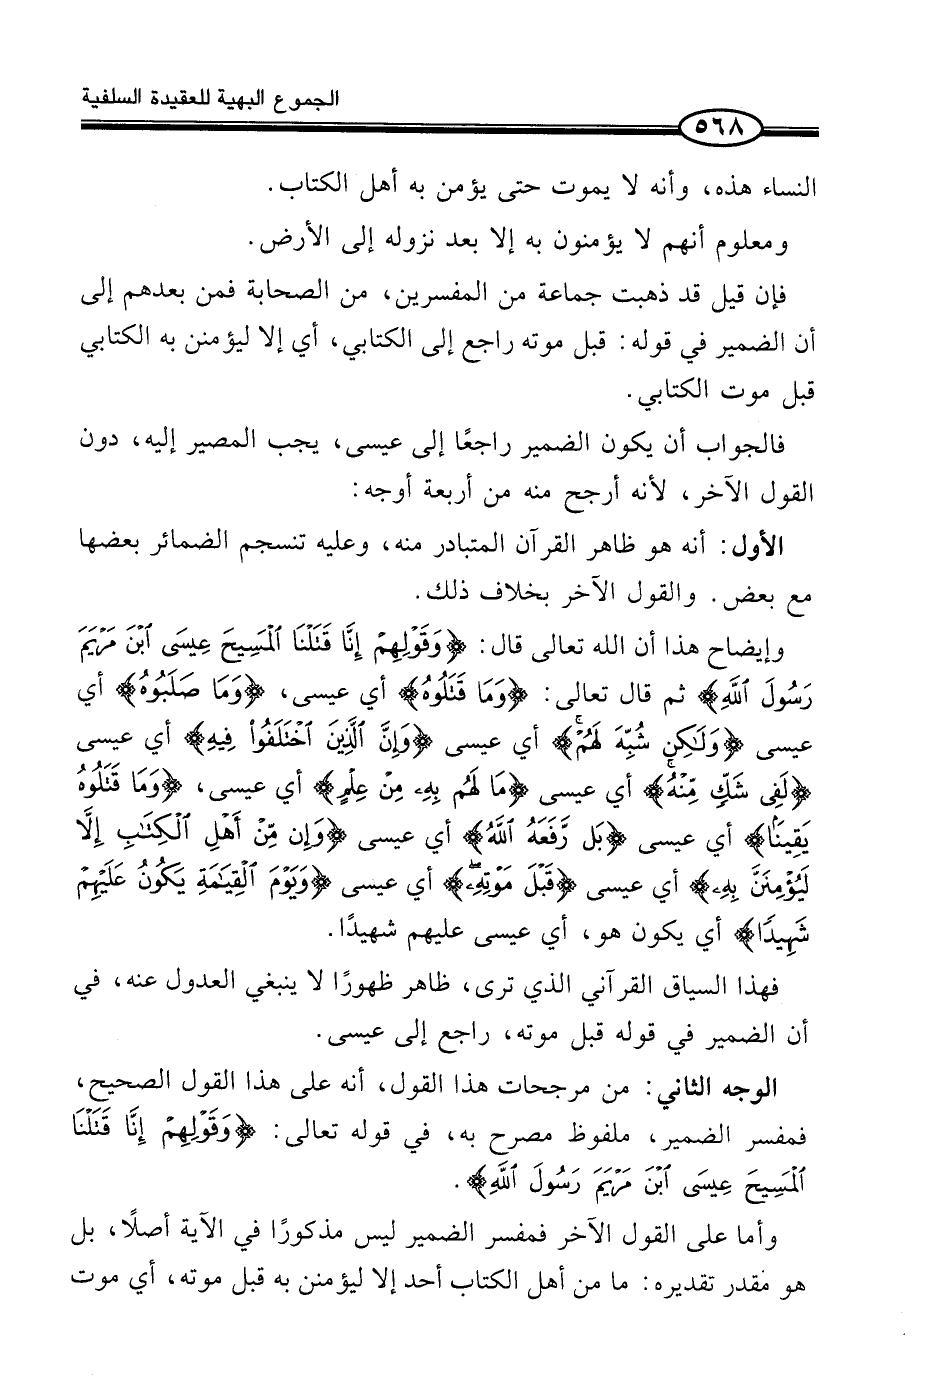 الجموع البهية للعقيدة السلفية
٥٦٨
النساء هذه، وأنه لا يموت حتى يؤمن به أهل الكتاب.
ومعلوم أنهم لا يؤمنون به إلا بعد نزوله إلى الأرض.
فإن قيل قد ذهبت جماعة من المفسرين، من الصحابة فمن بعدهم إلى
أن الضمير في قوله: قبل موته راجع إلى الكتابي، أي إلا ليؤمنن به الكتابي
قبل موت الكتابي.
فالجواب أن يكون الضمير راجعًا إلى عيسى، يجب المصير إليه، دون
القول الآخر، لأنه أرجح منه من أربعة أوجه:
الأول: أنه هو ظاهر القرآن المتبادر منه، وعليه تنسجم الضمائر بعضها
مع بعض. والقول الآخر بخلاف ذلك.
وإيضاح هذا أن الله تعالى قال: ﴿وَقَوْلِهِمْ إِنَّا قَتَلْنَا ٱلْمَسِيحَ عِيسَى ٱبْنَ مَرْيَمَ
رَسُولَ ٱللَّهِ﴾ ثم قال تعالى: ﴿وَمَا قَتَلُوهُ﴾ أي عيسى، ﴿وَمَا صَلَبُوهُ﴾ أي
عيسى ﴿وَلَٰكِن شُبِّهَ لَهُمْ ۚ﴾ أي عيسى ﴿وَإِنَّ ٱلَّذِينَ ٱخْتَلَفُوا۟ فِيهِ﴾ أي عيسى
﴿لَفِى شَكٍّ مِّنْهُ ۚ﴾ أي عيسى ﴿مَا لَهُم بِهِۦ مِنْ عِلْمٍ﴾ أي عيسى، ﴿وَمَا قَتَلُوهُ
يَقِينًۢا﴾ أي عيسى ﴿بَل رَّفَعَهُ ٱللَّهُ﴾ أي عيسى ﴿وَإِن مِّنْ أَهْلِ ٱلْكِتَٰبِ إِلَّا
لَيُؤْمِنَنَّ بِهِۦ﴾ أي عيسى ﴿قَبْلَ مَوْتِهِۦ ۖ﴾ أي عيسى ﴿وَيَوْمَ ٱلْقِيَٰمَةِ يَكُونُ عَلَيْهِمْ
شَهِيدًا﴾ أي يكون هو، أي عيسى عليهم شهيدًا.
فهذا السياق القرآني الذي ترى، ظاهر ظهورًا لا ينبغي العدول عنه، في
أن الضمير في قوله قبل موته، راجع إلى عيسى.
الوجه الثاني: من مرجحات هذا القول، أنه على هذا القول الصحيح،
فمفسر الضمير، ملفوظ مصرح به، في قوله تعالى: ﴿وَقَوْلِهِمْ إِنَّا قَتَلْنَا
ٱلْمَسِيحَ عِيسَى ٱبْنَ مَرْيَمَ رَسُولَ ٱللَّهِ﴾.
وأما على القول الآخر فمفسر الضمير ليس مذكورًا في الآية أصلًا، بل
هو مقدر تقديره: ما من أهل الكتاب أحد إلا ليؤمنن به قبل موته، أي موت